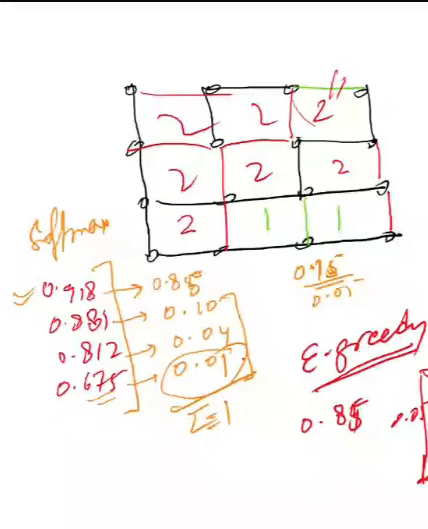 2 2 2
2 2 2
2 1 1
Softmax
0.918 → 0.85
0.881 → 0.10
0.812 → 0.04
0.675 → 0.01
Σ=1
0.95
ε-greedy
0.85